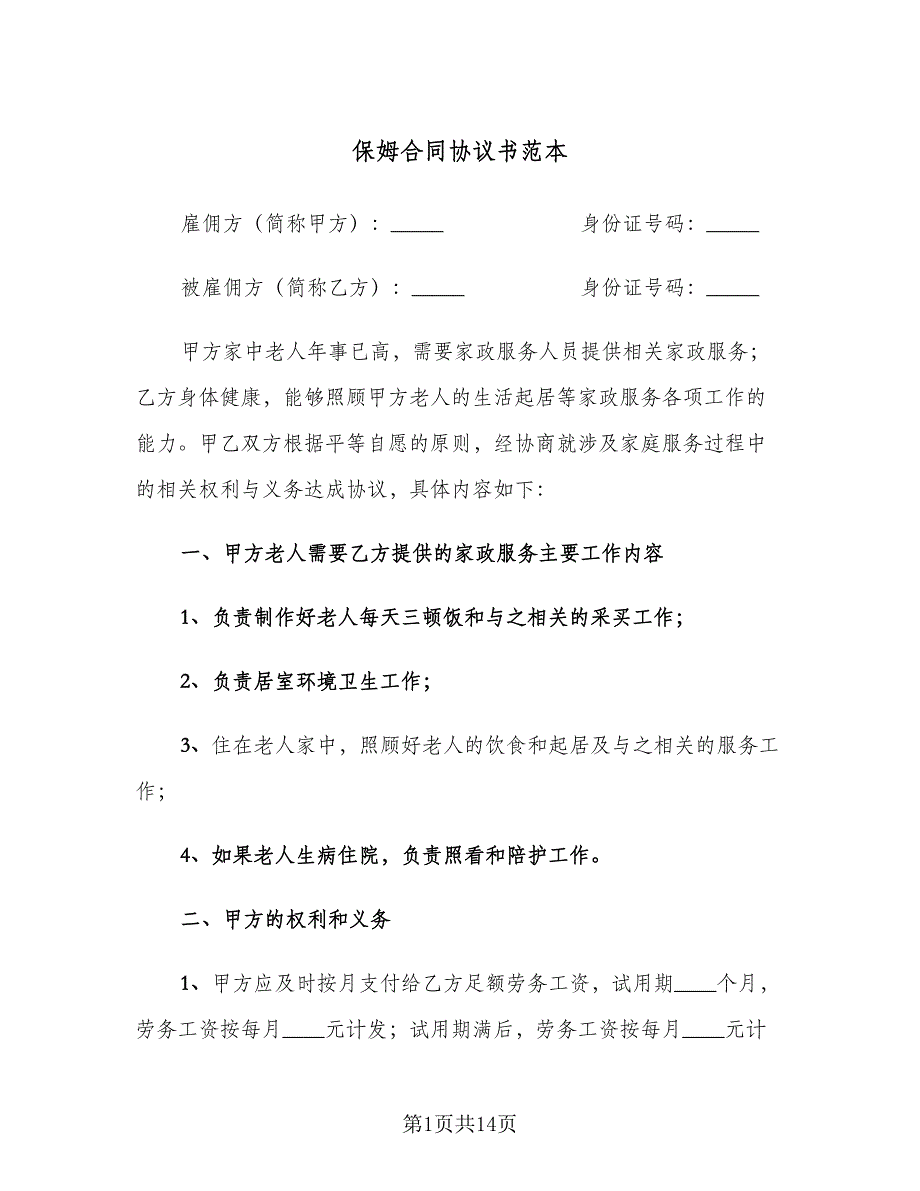 保姆合同协议书范本
雇佣方（简称甲方）：_____ 身份证号码：_____
被雇佣方（简称乙方）：_____ 身份证号码：_____
甲方家中老人年事已高，需要家政服务人员提供相关家政服务；
乙方身体健康，能够照顾甲方老人的生活起居等家政服务各项工作的
能力。甲乙双方根据平等自愿的原则，经协商就涉及家庭服务过程中
的相关权利与义务达成协议，具体内容如下：
一、甲方老人需要乙方提供的家政服务主要工作内容
1、负责制作好老人每天三顿饭和与之相关的采买工作；
2、负责居室环境卫生工作；
3、住在老人家中，照顾好老人的饮食和起居及与之相关的服务工
作；
4、如果老人生病住院，负责照看和陪护工作。
二、甲方的权利和义务
1、甲方应及时按月支付给乙方足额劳务工资，试用期____个月，
劳务工资按每月____元计发；试用期满后，劳务工资按每月____元计
第1页共14页